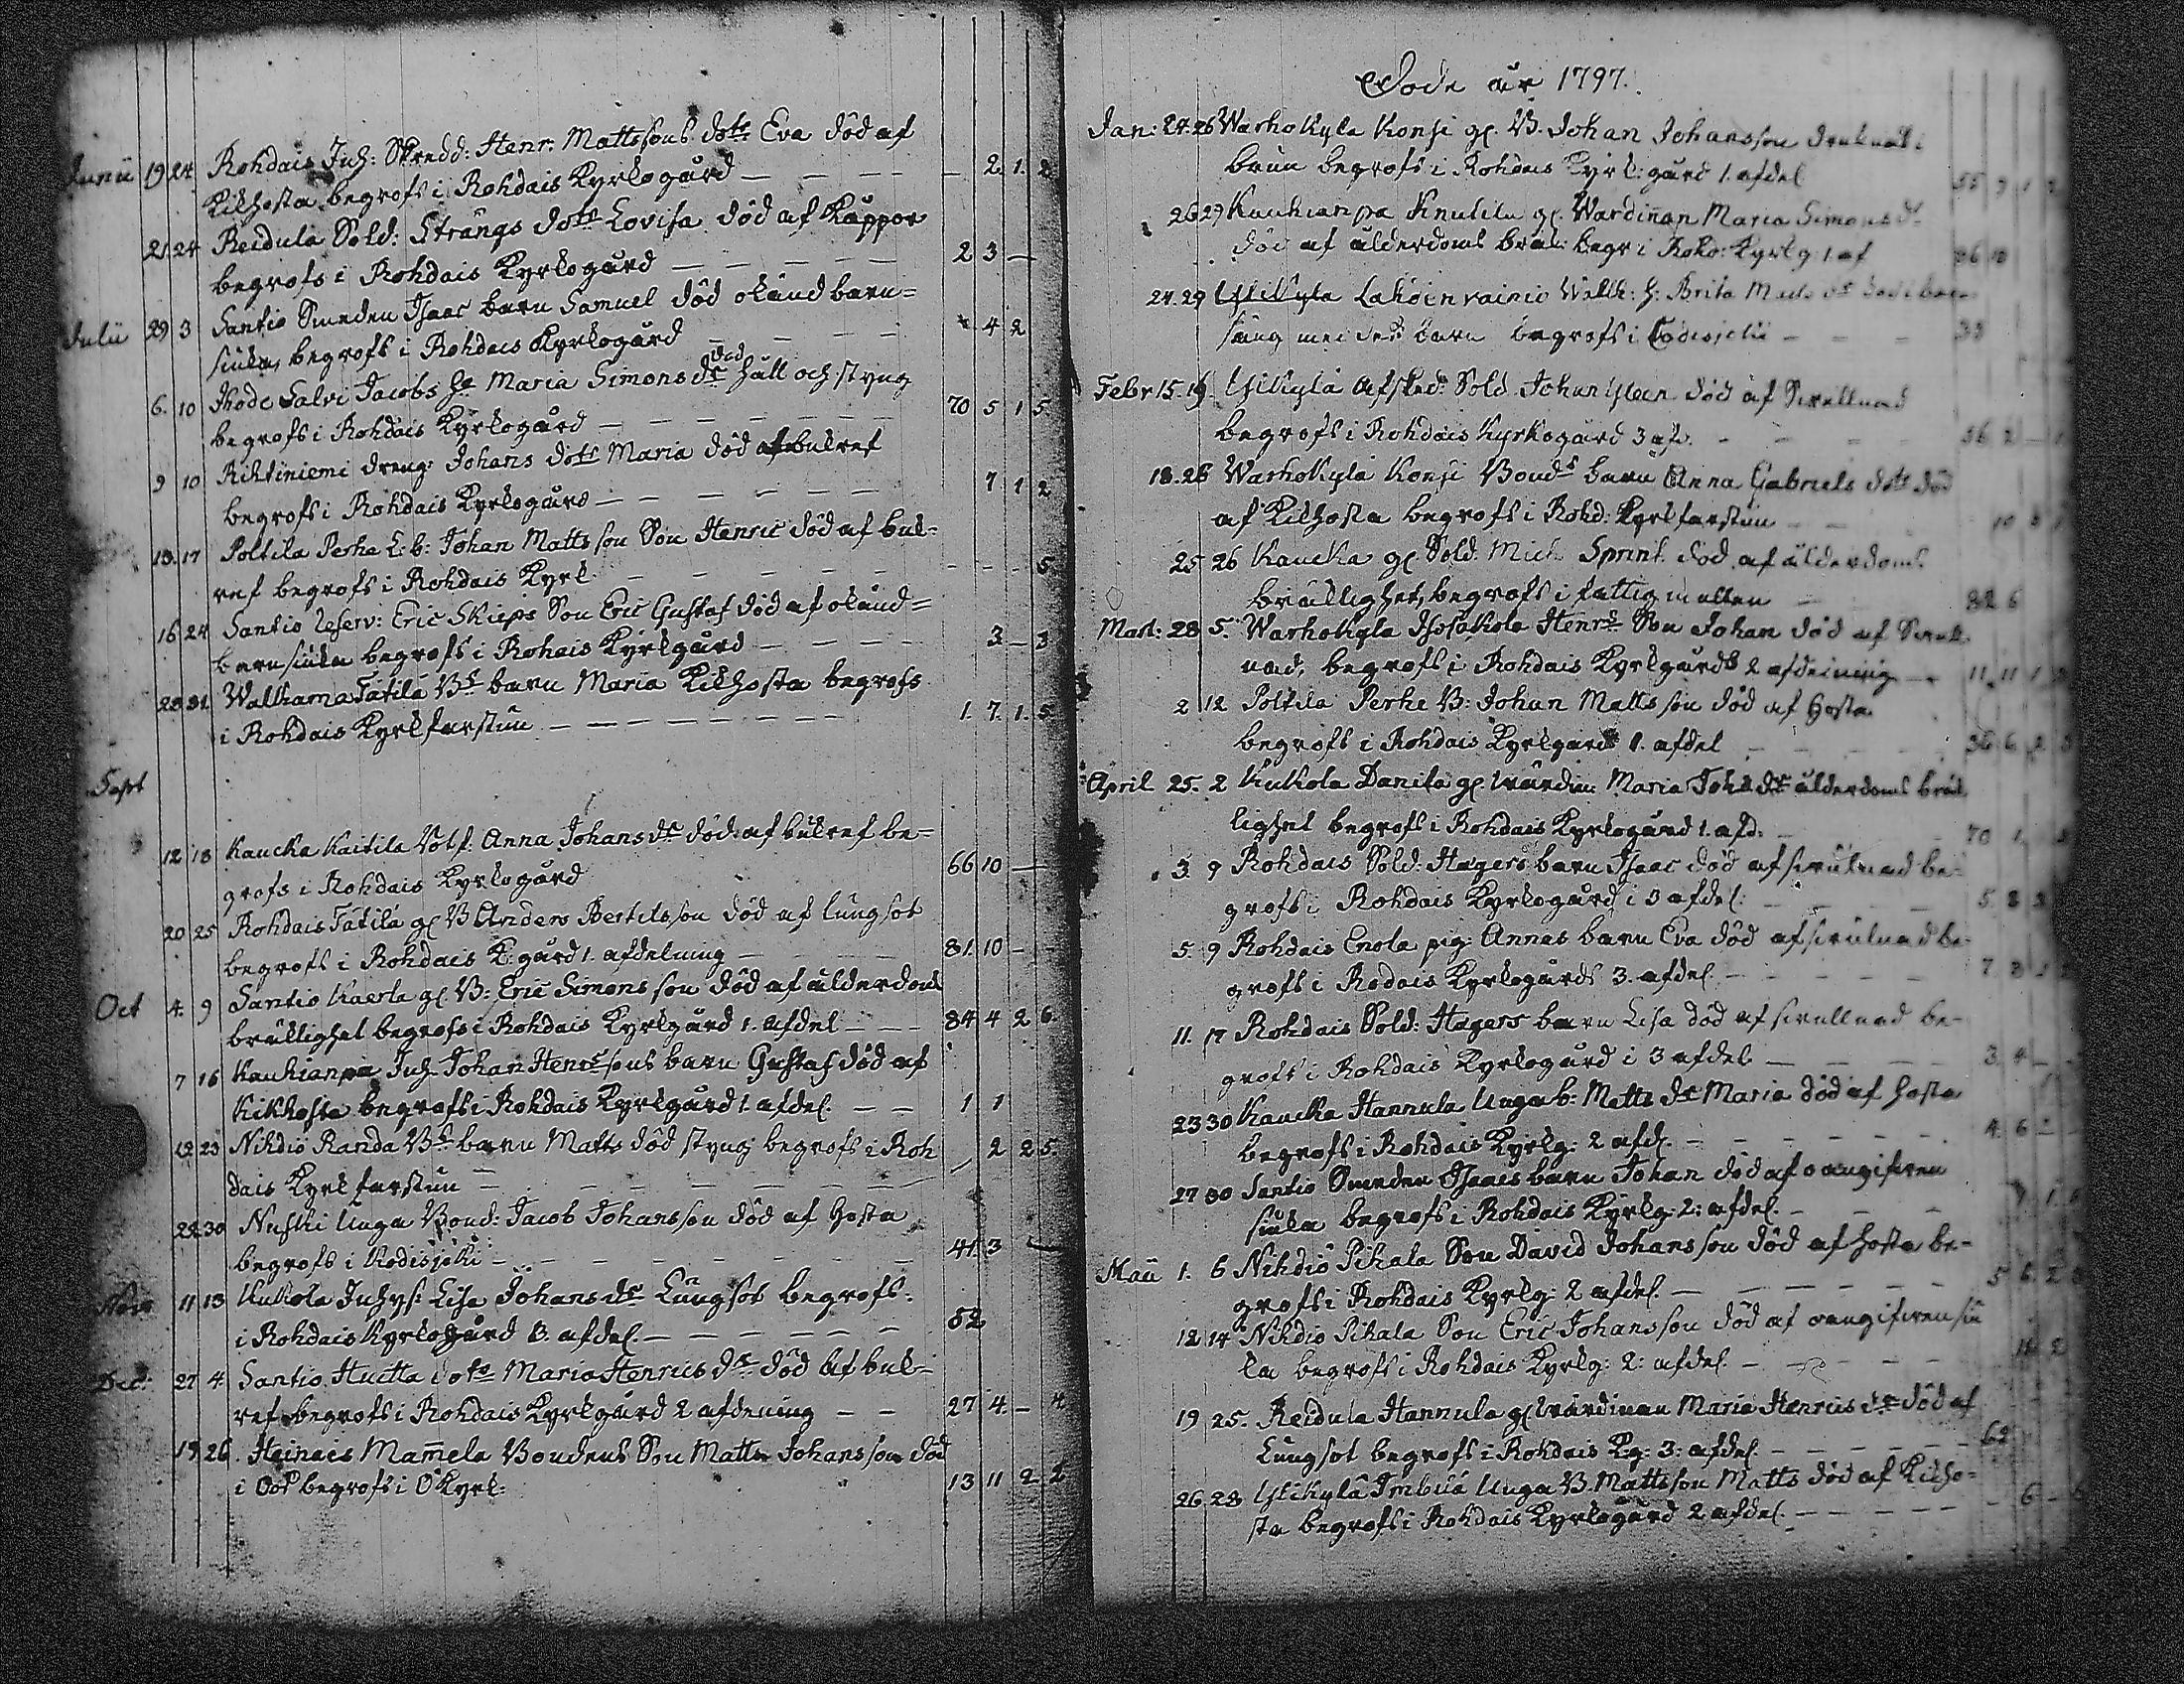 Junii 19 24 Rohdais Inh: Skredd: Henr: Mattssons dotr Eva död af
Kikhosta begrofs i Rohdais Kyrkogård — — — 2. 1. 2
21. 24 Reidula Sold: Strångs dotr Lovisa död af Kåppor
begrofs i Rohdais Kyrkogård — — — 2 3 —
Julii 29 3 Santio Smeden Isaac barn Samuel död okänd barn=
siuka, begrofs i Rohdais Kyrkogård — — 4 2
6. 10 Ihode Salvi Jacobs h: Maria Simonsdr död håll och styng
begrofs i Rohdais Kyrkogård — — — 70 5 1 5
9 10 Rihtiniemi dreng: Johans dotr Maria död af bukref
begrofs i Rohdais Kyrkogård — — — 7 1 2
13. 17 Poltila Perhe L: b: Johan Mattsson Son Henric död af buk=
ref begrofs i Rohdais Kyrk — — — 5
16 24 Santio Reserv: Eric Skieps Son Eric Gustaf död af okänd=
barnsiuka begrofs i Rohais Kyrkgård — — 3 — 3
28 31. Walkama Tätilä Bs barn Maria Kikhosta begrofs
i Rohdais Kyrkfarstun — — — 1. 7. 1. 5
Sept
12 18 Kaucka Kaitila Anna Johansdr död af bukref be=
grofs i Rohdais Kyrkogård 66 10 —
20 25 Rohdais Tätilä gl B Anders Bertilsson död af lungsot
begrofs i Rohdais K: gård 1. afdelning — 81. 10 —
Oct 4. 9 Santio Kaerla gl. B: Eric Simonsson död af ålderdoms
bräcklighet begrofs i Rohdais Kyrkgård 1. afdel — — 84 4 2 6.
7 16 Kauhianpä Inh Johan Henrssons barn Gustaf död af
Kikhosta begrofs i Rohdais Kyrkgård 1. afdel. — — 1 1
12 23 Nihdiö Randa Bs barn Matts död styng begrofs i Roh
dais Kyrk farstun — — — 2 2 5.
22 30 Nuhki Unga Bond: Jacob Johansson död af hosta
begrofs i Kodisjoki — — — 41. 3
Nov 11 13 Kukola Inhys: Lisa Johansdr Lungsot begrofs
i Rohdais Kyrkogård 3. afdel. — — — 52
Dec: 27 4. Santio Huitta dotr Maria Henricsdr död af buk=
ref begrofs i Rohdais Kyrkgård 2 afdening — — 27 4. — 4
19 26. Heinais Mamela Bondens Son Matts Johansson död
i begrofs i Kyrk: 13 11 2 2
Döde år 1797.
Jan: 24. 26 Warhokyla Konsi gl. B. Johan Johansson
begrofs i Rohdais Kyrk: gård 1. afdel 55 9 1 2
26 29 Kauhianpä Knutila gl. Wärdinan Maria Simonsdr
död af ålderdoms bräk: begr i Rohd: Kyrkg 1. af 86 10
24. 29 Ylikylä Lahdenrainio h: Brita Mats dr
säng med des barn begrofs i Kodisjoki — — 33
Febr 15. 19. Ylikylä Afsked: Sold Johan död af Svullnad
begrofs i Rohdais Kyrkogård 3 af. — — 56 2 — 1
18. 26 Warhokyla Konsi Bonds barn Anna Gabriels dotr död
af Kikhosta begrofs i Rohd: Kyrkfarstun — 10 3 1
25 26 Kaucka gl. Sold. Mich Sprint död af ålderdoms
bräcklighet, begrofs i fattigmullen — 82 6
Mart: 28 5. Warhokyla Isosakola Henrs Son Johan död af Svull
nad, begrofs i Rohdais Kyrkgårds 2 afdelning — 11. 11 1 3
2 12 Poltila Perhe B: Johan Mattsson död af hosta
begrofs i Rohdais Kyrkgård 1. afdel — — 36 6. 2 3
April 25. 2 Kukola Danila gl. wärdin: Maria Johsdr ålderdoms bräk
lighet begrofs i Rohdais Kyrkogård 1. afd: — 70 1. 3
3. 9 Rohdais Sold: Hagers barn Isaac död af svulnad be=
grofs i Rohdais Kyrkogård i 3 afdel: — — 5 8 3
5. 9 Rohdais Enola pig: Annas barn Eva död af svulnad be=
grofs i Rodais Kyrkogårds 3. afdel. — — 7 3 1 2
11. 17 Rohdais Sold: Hagers barn Lisa död af svullnad be=
grofs i Rohdais Kyrkogård i 3 afdel — — 3. 4 —
23 30 Kaucka Hannula Unga b: Matts dr Maria död af hosta
begrofs i Rohdais Kyrkg: 2 afd. — — 4. 6 —
27 30 Santio Smeden Isaacs barn Johan död af oangifven
siuka begrofs i Rohdais Kyrkg: 2: afdel. — —
Maii 1. 6 Nihdiö Pihala Son David Johansson död af hosta be=
grofs i Rohdais Kyrkg: 2 afdel. — — — 5 6. 2 3
12 14 Nihdiö Pihala Son Eric Johansson död af oangifven siu
ka begrofs i Rohdais Kyrkg: 2: afdel. — — — 11. 2
19 25. Reidula Hannula gl wärdinan Maria Henricsdr död af
Lungsot begrofs i Rohdais Kg: 3: afdel — — — 62
26 28 Ylikylä Imbua Unga B. Mattsson Matts död af Kikho=
sta begrofs i Rohdais Kyrkogård 2 afdel. — — — 6 —